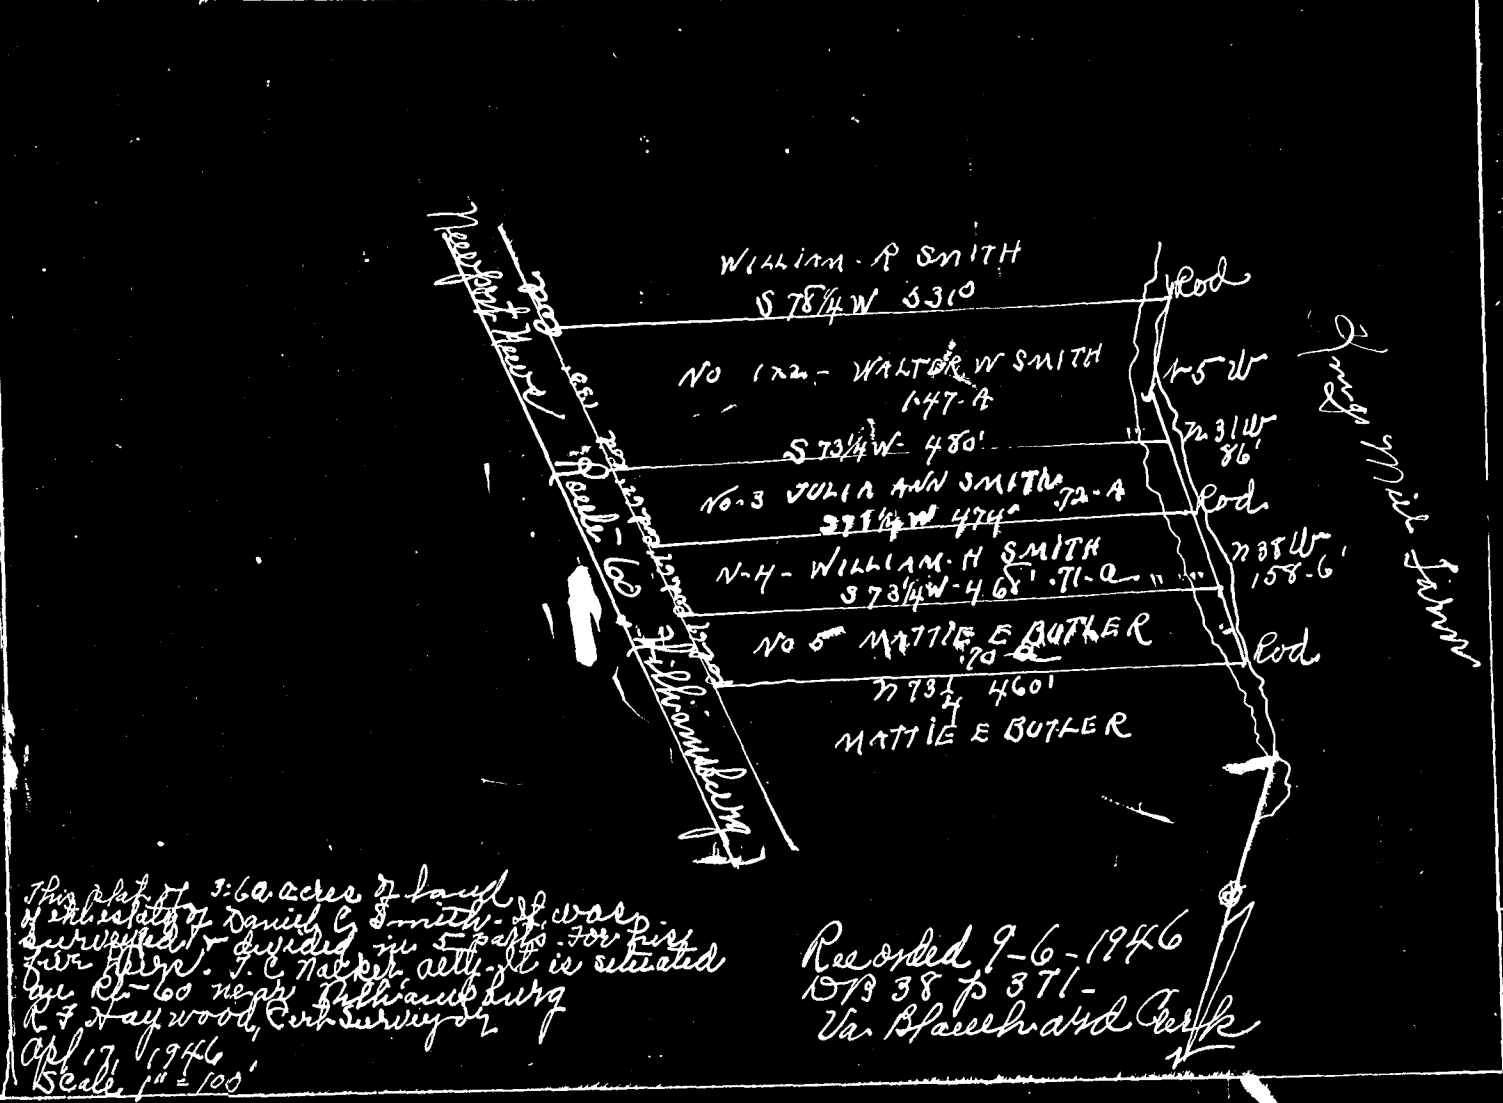 WILLIAM. R SMITH
S 78¼ W 531°
Rod
Newport News
Route-60. Williamsburg
No 1x2- WALTER W SMITH
1.47-A
N 5 W
S 73¼ W- 480'
N 31 W
86'
No.3 JULIA ANN SMITH .72-A
¼ W 474'
Rod
N-4- WILLIAM. H SMITH
S 73¼ W-468' .71-a
N 38 W
158-6'
No 5 MATTIE E BUTLER
.70-a
Rod
N 73¼ 460'
MATTIE E BUTLER
Mill Farm
This plat of 3.60 acres of land
of the estate of Daniel G Smith. It was
surveyed & divided in 5 parts. For his
five heirs. T. C. atty. It is situated
on Rt-60 near Williamsburg
R F Haywood, Cert Surveyor
Apl 17, 1946
Scale 1" = 100'
Recorded 9-6-1946
DB 38 p 371-
Va Blanchard Clerk